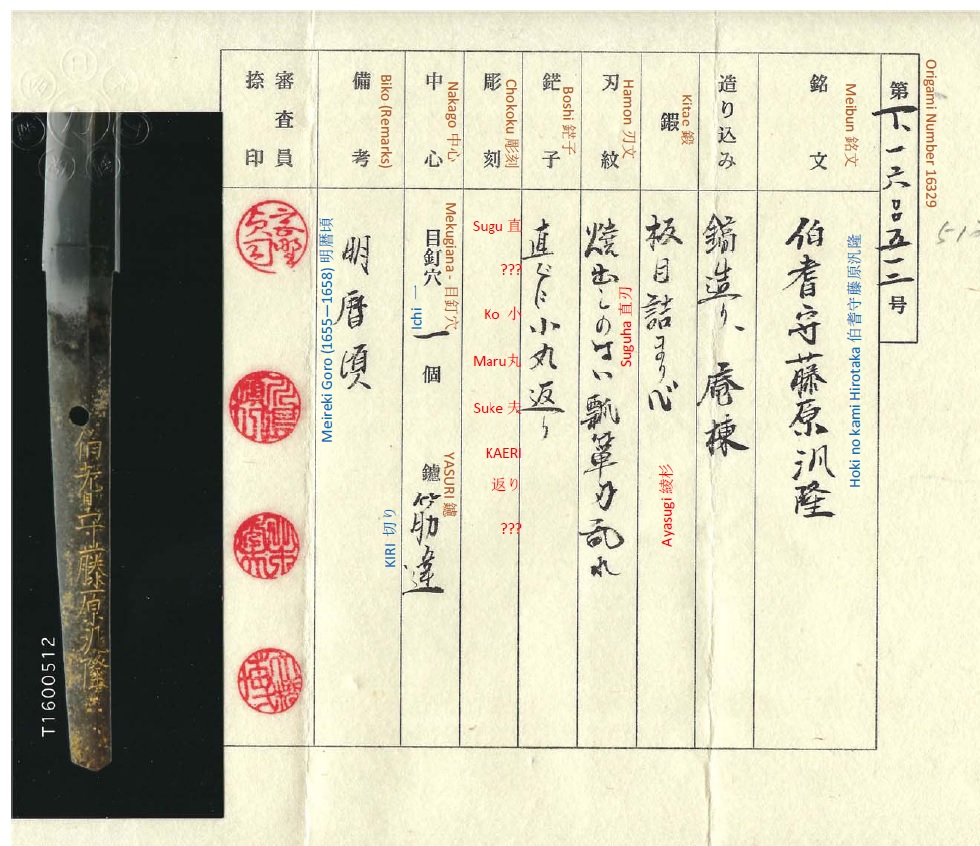 Origami Number 16329
第T、一六〇〇五一二号
Meibun 銘文
銘文
伯耆守藤原汎隆
Hoki no kami Hirotaka 伯耆守藤原汎隆
造り込み
鎬造り、庵棟
Kitae 鍛
鍛
板目詰まり心
Ayasugi 綾杉
Hamon 刃文
刃紋
焼出しのはい瓢箪刃乱れ
Suguha 直刃
Boshi 鋩子
鋩子
直ぐに小丸返り
Chokoku 彫刻
彫刻
Sugu 直
???
Ko 小
Maru 丸
Suke 夫
KAERI
返り
???
Nakago 中心
中心
Mekugiana - 目釘穴
目釘穴 一 個
Ichi 一
YASURI 鑢
鑢 筋違
KIRI 切り
Biko (Remarks)
備考
明暦頃
Meireki Goro (1655—1658) 明暦頃
審査員
捺印
伯耆守藤原汎隆
T1600512